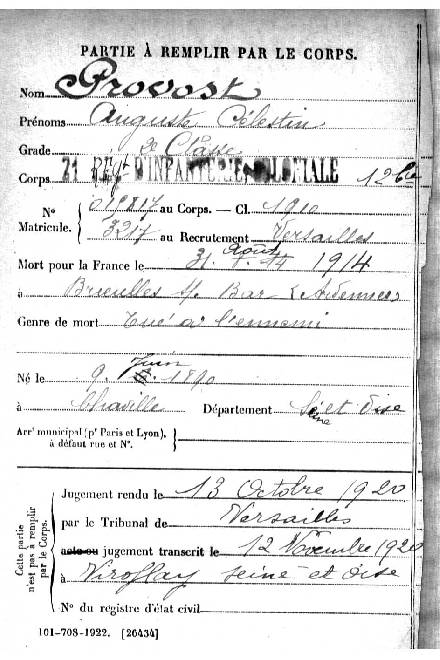 PARTIE À REMPLIR PAR LE CORPS.
Nom Provost
Prénoms Auguste Célestin
Grade 2e Classe
Corps 21 REGt D'INFANTERIE COLONIALE 12 Cie
N° Matricule. { au Corps. — Cl. 1910
3217 au Recrutement Versailles
Mort pour la France le 31 Août 14 1914
à Bruxelles s/ Bar (Ardennes)
Genre de mort Tué à l'ennemi
Né le 9. Juin 1890
à Chaville Département Seine et Oise
Arrt municipal (pr Paris et Lyon),
à défaut rue et N°.
Cette partie n'est pas à remplir par le Corps.
Jugement rendu le 13 Octobre 1920
par le Tribunal de Versailles
acte ou jugement transcrit le 12 Novembre 1920
à Viroflay Seine et Oise
N° du registre d'état civil
101-708-1922. [26434]